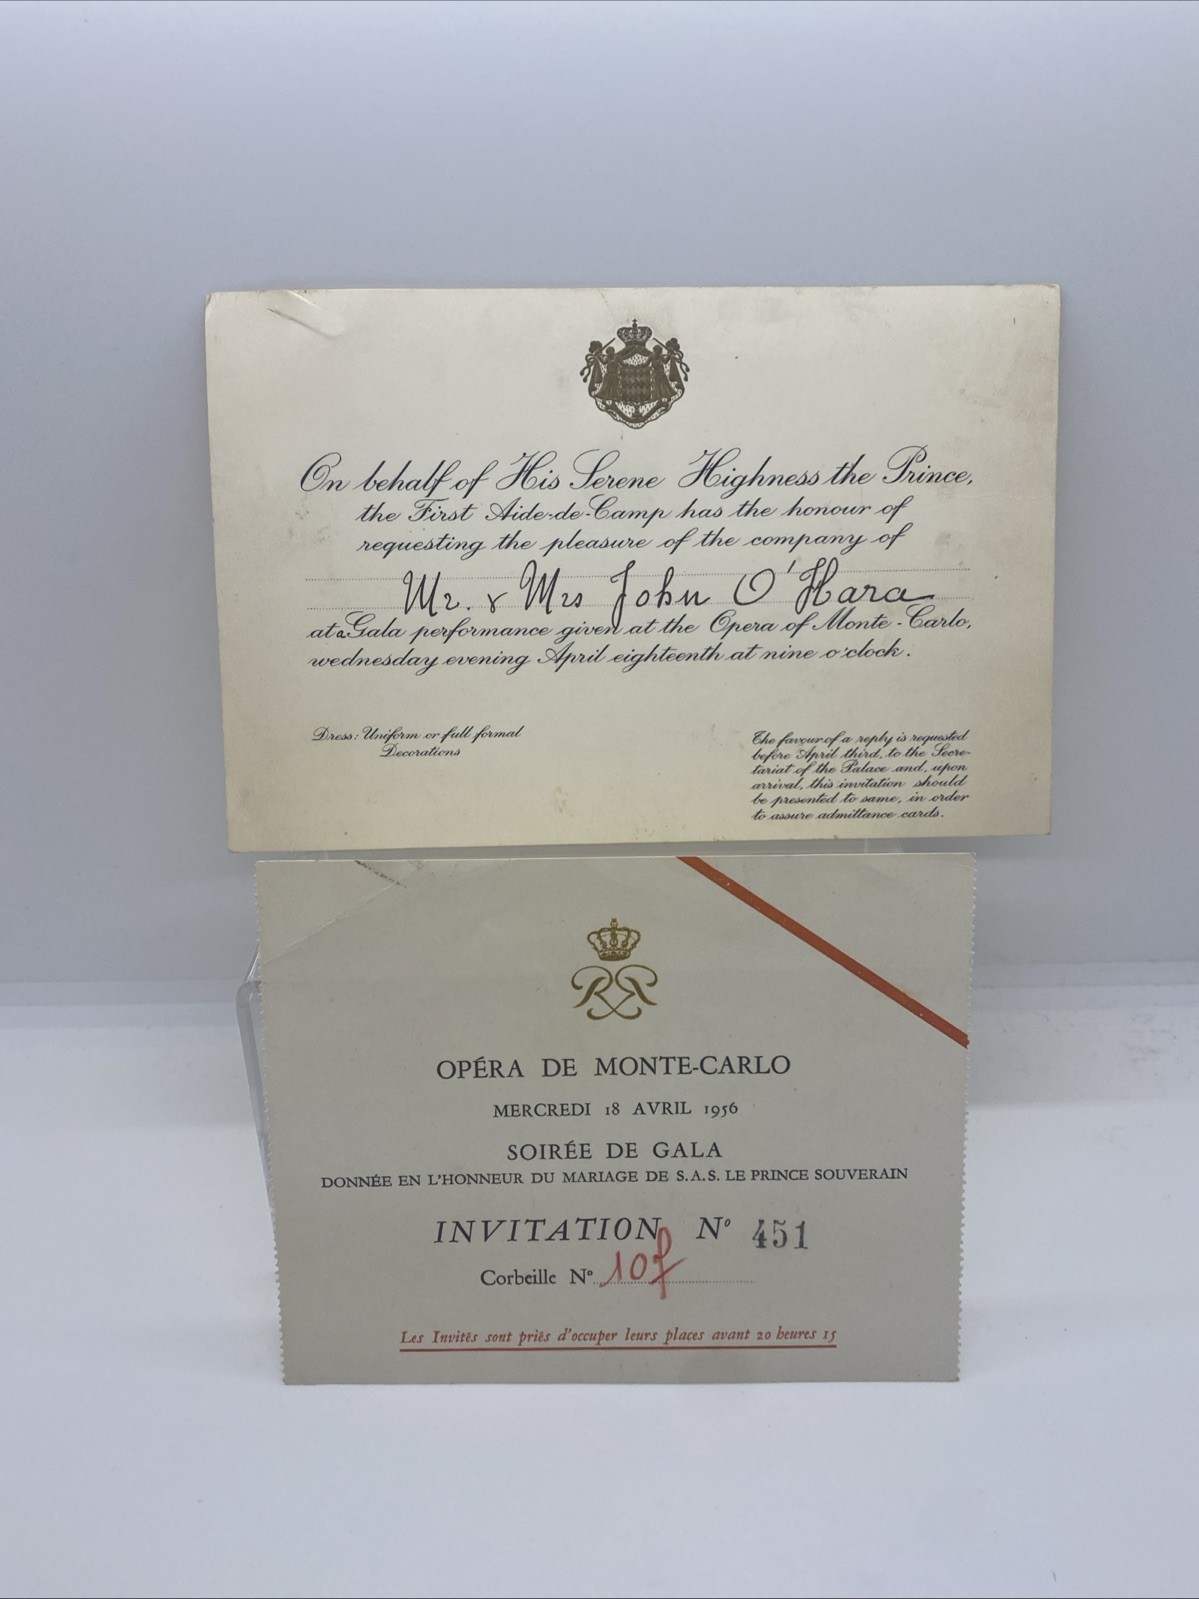 On behalf of His Serene Highness the Prince,
the First Aide-de-Camp has the honour of
requesting the pleasure of the company of
Mr. & Mrs John O'Hara
at a Gala performance given at the Opera of Monte-Carlo,
wednesday evening April eighteenth at nine o'clock.
Dress: Uniform or full formal
Decorations
The favour of a reply is requested
before April third, to the Secre-
tariat of the Palace and, upon
arrival, this invitation should
be presented to same, in order
to assure admittance cards.
OPÉRA DE MONTE-CARLO
MERCREDI 18 AVRIL 1956
SOIRÉE DE GALA
DONNÉE EN L'HONNEUR DU MARIAGE DE S.A.S. LE PRINCE SOUVERAIN
INVITATION N° 451
Corbeille N°
Les Invités sont priés d'occuper leurs places avant 20 heures 15